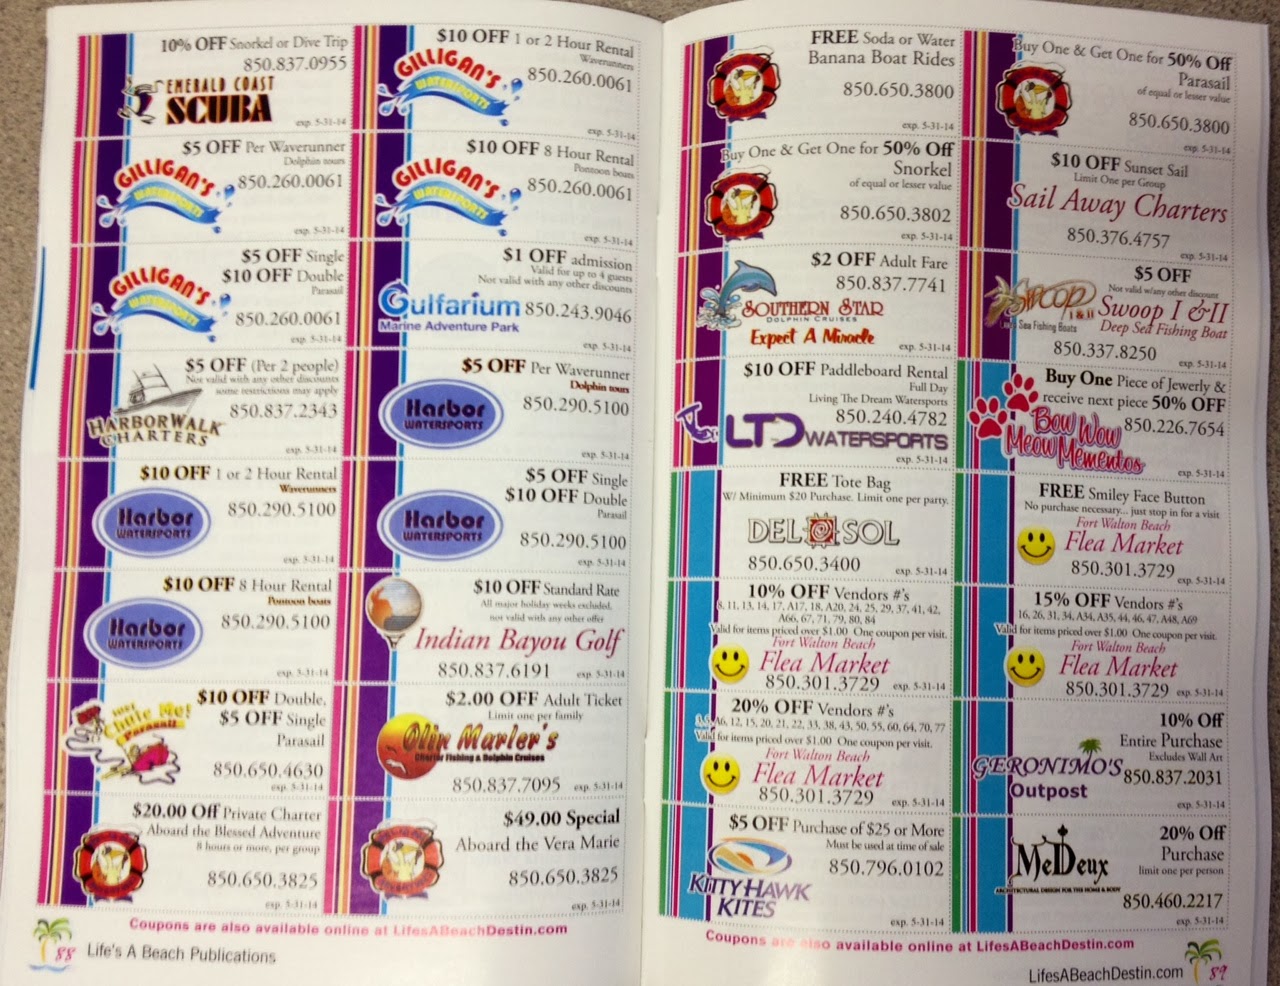 10% OFF Snorkel or Dive Trip
850.837.0955
EMERALD COAST
SCUBA
exp. 5-31-14
$10 OFF 1 or 2 Hour Rental
Waverunners
GILLIGAN'S
WATERSPORTS
850.260.0061
exp. 5-31-14
$5 OFF Per Waverunner
Dolphin tours
GILLIGAN'S
WATERSPORTS
850.260.0061
exp. 5-31-14
$10 OFF 8 Hour Rental
Pontoon boats
GILLIGAN'S
WATERSPORTS
850.260.0061
exp. 5-31-14
$5 OFF Single
$10 OFF Double
Parasail
GILLIGAN'S
WATERSPORTS
850.260.0061
exp. 5-31-14
$1 OFF admission
Valid for up to 4 guests
Not valid with any other discounts
Gulfarium
Marine Adventure Park
850.243.9046
exp. 5-31-14
$5 OFF (Per 2 people)
Not valid with any other discounts
some restrictions may apply
850.837.2343
HARBORWALK
CHARTERS
exp. 5-31-14
$5 OFF Per Waverunner
Dolphin tours
Harbor
WATERSPORTS
850.290.5100
exp. 5-31-14
$10 OFF 1 or 2 Hour Rental
Waverunners
Harbor
WATERSPORTS
850.290.5100
exp. 5-31-14
$5 OFF Single
$10 OFF Double
Parasail
Harbor
WATERSPORTS
850.290.5100
exp. 5-31-14
$10 OFF 8 Hour Rental
Pontoon boats
Harbor
WATERSPORTS
850.290.5100
exp. 5-31-14
$10 OFF Standard Rate
All major holiday weeks excluded,
not valid with any other offer
Indian Bayou Golf
850.837.6191
exp. 5-31-14
$10 OFF Double,
$5 OFF Single
Parasail
Just
Chute Me!
Parasail
850.650.4630
exp. 5-31-14
$2.00 OFF Adult Ticket
Limit one per family
Olin Marler's
Charter Fishing & Dolphin Cruises
850.837.7095
exp. 5-31-14
$20.00 Off Private Charter
Aboard the Blessed Adventure
8 hours or more, per group
850.650.3825
exp. 5-31-14
$49.00 Special
Aboard the Vera Marie
850.650.3825
exp. 5-31-14
Coupons are also available online at LifesABeachDestin.com
88 Life's A Beach Publications
FREE Soda or Water
Banana Boat Rides
850.650.3800
exp. 5-31-14
Buy One & Get One for 50% Off
Parasail
of equal or lesser value
850.650.3800
exp. 5-31-14
Buy One & Get One for 50% Off
Snorkel
of equal or lesser value
850.650.3802
exp. 5-31-14
$10 OFF Sunset Sail
Limit One per Group
Sail Away Charters
850.376.4757
exp. 5-31-14
$2 OFF Adult Fare
850.837.7741
SOUTHERN STAR
DOLPHIN CRUISES
Expect A Miracle
exp. 5-31-14
$5 OFF
Not valid w/any other discount
SWOOP
I & II
Sea Fishing Boats
Swoop I & II
Deep Sea Fishing Boat
850.337.8250
exp. 5-31-14
$10 OFF Paddleboard Rental
Full Day
Living The Dream Watersports
850.240.4782
LTD WATERSPORTS
exp. 5-31-14
Buy One Piece of Jewerly &
receive next piece 50% OFF
850.226.7654
Bow Wow
Meow Mementos
exp. 5-31-14
FREE Tote Bag
W/ Minimum $20 Purchase. Limit one per party.
DEL SOL
850.650.3400
exp. 5-31-14
FREE Smiley Face Button
No purchase necessary... just stop in for a visit
Fort Walton Beach
Flea Market
850.301.3729
exp. 5-31-14
10% OFF Vendors #'s
8, 11, 13, 14, 17, A17, 18, A20, 24, 25, 29, 37, 41, 42,
A66, 67, 71, 79, 80, 84
Valid for items priced over $1.00 One coupon per visit.
Fort Walton Beach
Flea Market
850.301.3729
exp. 5-31-14
15% OFF Vendors #'s
16, 26, 31, 34, A34, A35, 44, 46, 47, A48, A69
Valid for items priced over $1.00 One coupon per visit.
Fort Walton Beach
Flea Market
850.301.3729
exp. 5-31-14
20% OFF Vendors #'s
A6, 12, 15, 20, 21, 22, 33, 38, 43, 50, 55, 60, 64, 70, 77
Valid for items priced over $1.00 One coupon per visit.
Fort Walton Beach
Flea Market
850.301.3729
exp. 5-31-14
10% Off
Entire Purchase
Excludes Wall Art
GERONIMO'S
Outpost
850.837.2031
exp. 5-31-14
$5 OFF Purchase of $25 or More
Must be used at time of sale
850.796.0102
KITTY HAWK
KITES
exp. 5-31-14
20% Off
Purchase
limit one per person
MeDeux
ARCHITECTURAL DESIGN FOR THE HOME & BODY
850.460.2217
exp. 5-31-14
Coupons are also available online at LifesABeachDestin.com
LifesABeachDestin.com 89